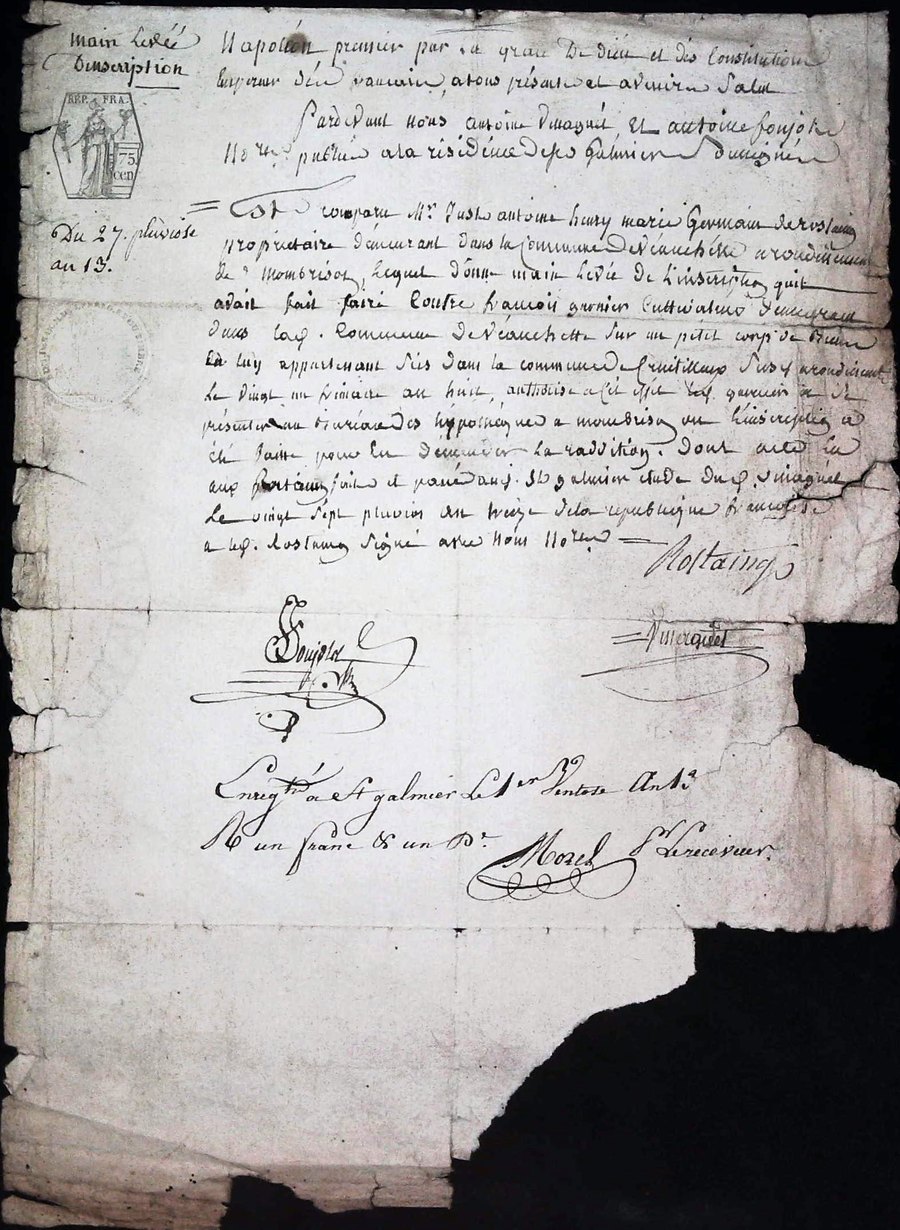 main Levéé
D'inscription
REP. FRA.
75
cen
Du 27. pluviose
an 13.
Napoléon premier par la grace De dieu et des Constitutions
Empereur des francais, atous présents et avenir Salut
Pardevant nous antoine et antoine
No.res publics ala résidence de St Galmier
Est comparu Mr. Just antoine henry marie Germain de rostaing
propriétaire demeurant dans la Commune De Veauchette arondissement
de Montbrison, Lequel donne main Levée de L'inscription quil
avait fait faire Contre francois garnier Cultivateur demeurant
dans lad. Commune De Veauchette Sur un petit corp de
a luy appartenant Sis dans la commune de arondissement
Le vingt un frimaire an huit, authorise a cet effet led. garnier a se
présenter au Bureau des hypotheques a montbrison ou L'inscription a
été faitte pour En demander La raddition. Dont acte
fait et passé aud. St galmier étude du d.
Le vingt Sept pluvios an treize dela republique francoise
a led. Rostaing Signé avec Nous No.res
Rostaing
Enreg.tré a St galmier Le 1er Ventose An 13
R un franc & un D.e
Morel Pr Le receveur.